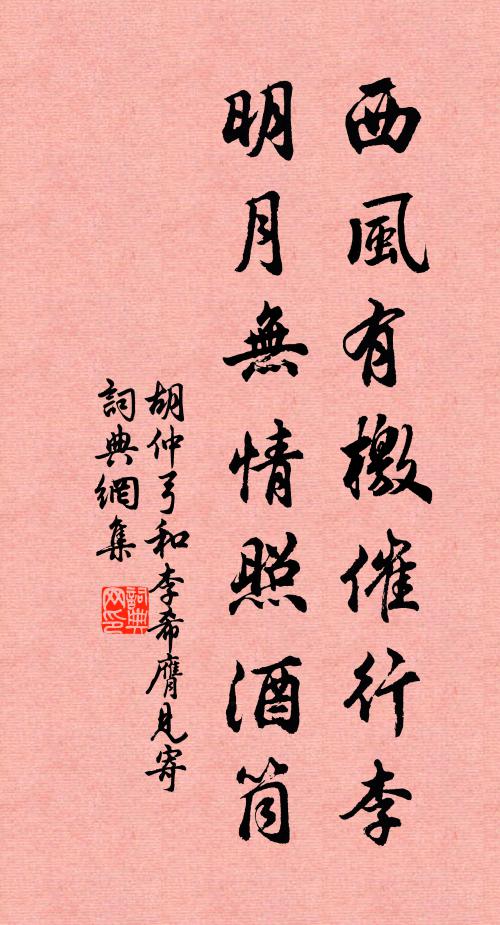 西風有檄催行李
明月無情照酒筒
胡仲弓和李希膺見寄
詞典網集
詞典网印